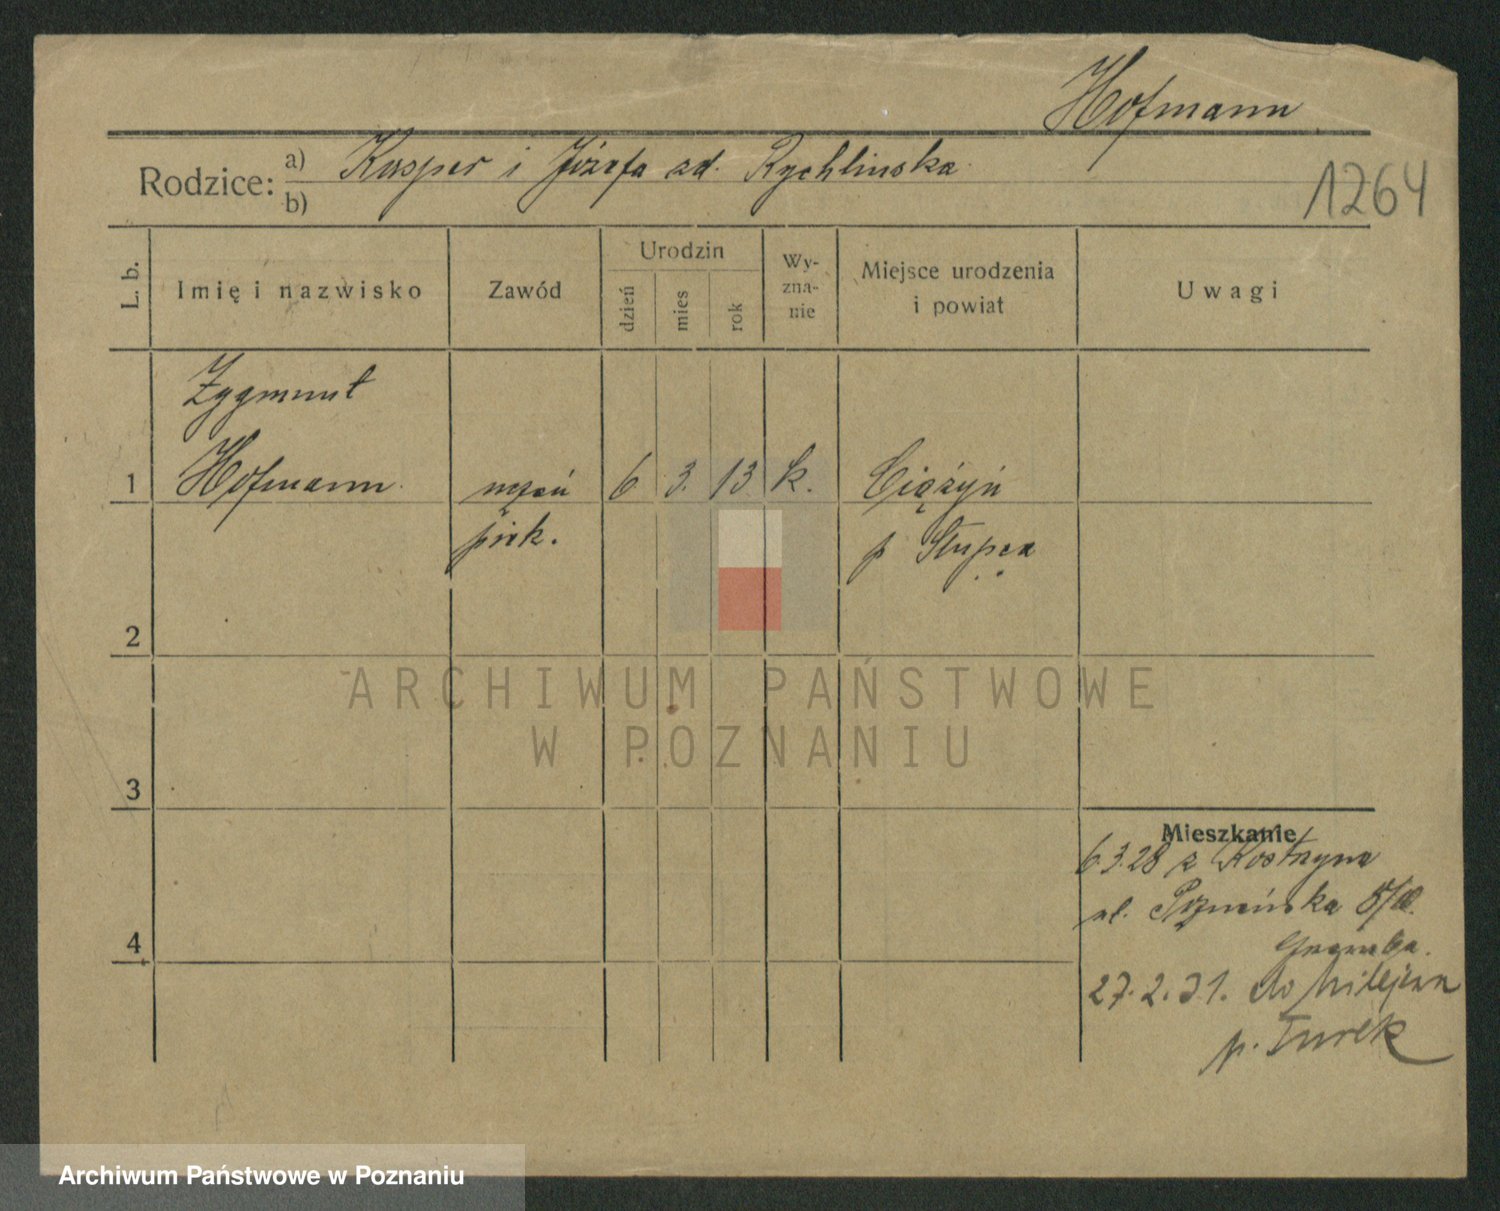 Hofmann
Rodzice: a) Kasper i Józefa zd. Rychlinska
b)
1264
L. b.
Imię i nazwisko
Zawód
Urodzin
dzień
mies
rok
Wy-
zna-
nie
Miejsce urodzenia
i powiat
Uwagi
Zygmunt
1 Hofmann uczeń 6 3. 13 k. Ciążyń
piek. p Słupca
2
ARCHIWUM PAŃSTWOWE
W POZNANIU
3
Mieszkanie
6.3.28 z Kostrzyna
ul. Poznańska
4
27.2.31. do
p. Turek
Archiwum Państwowe w Poznaniu